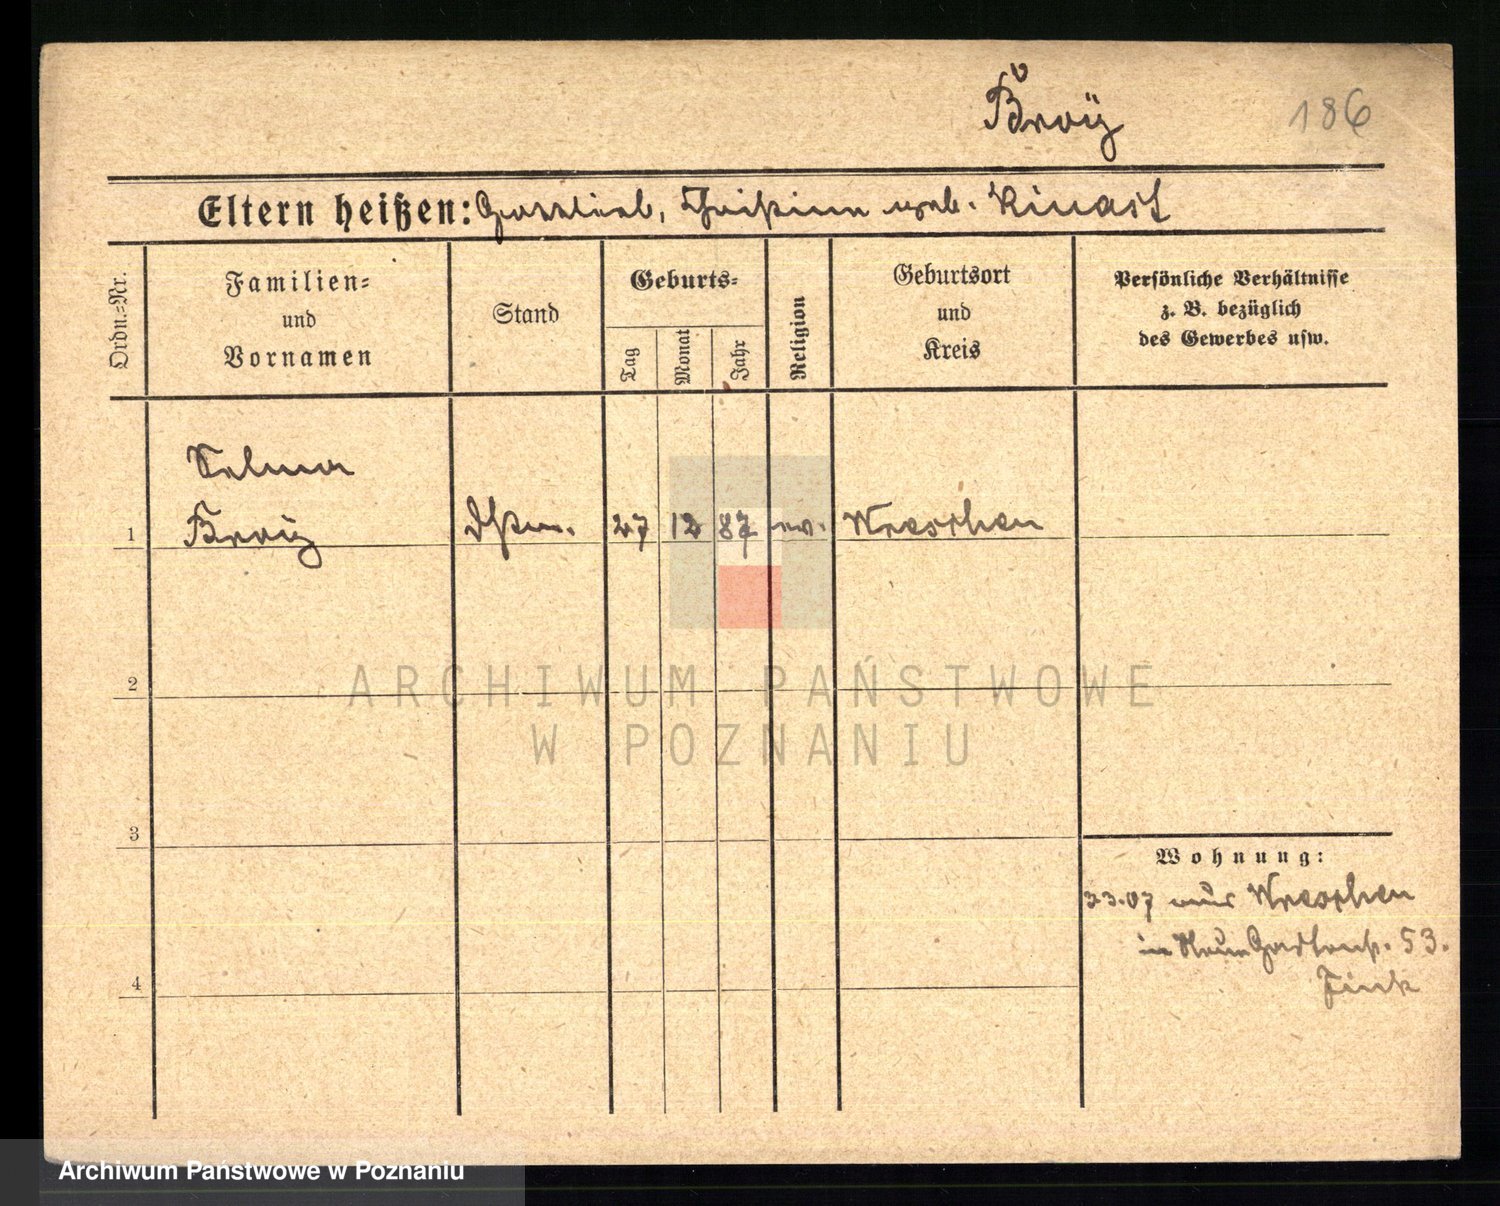 Broÿ
186
Eltern heißen: Gottlieb, Christine geb. Kinast
Ordn.=Nr.
Familien=
und
Vornamen
Stand
Geburts=
Tag
Monat
Jahr
Religion
Geburtsort
und
Kreis
Persönliche Verhältnisse
z. B. bezüglich
des Gewerbes usw.
Selma
1 Broÿ Dstm. 27 12 87 ev. Wreschen
2
ARCHIWUM PAŃSTWOWE
W POZNANIU
3
Wohnung:
07 aus Wreschen
in Neue Gartenst. 53.
4
Fink
Archiwum Państwowe w Poznaniu